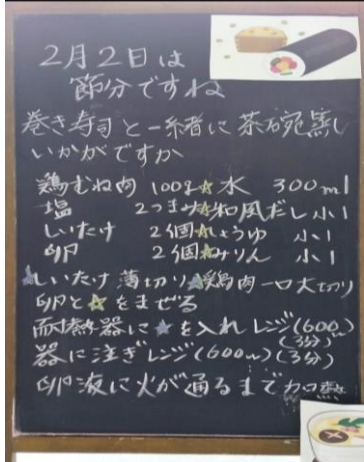 2月2日は
節分ですね
巻き寿司と一緒に茶碗蒸し
いかがですか
鶏むね肉 100g ☆水 300ml
塩 2つまみ ☆和風だし 小1
しいたけ 2個 ☆しょうゆ 小1
卵 2個 ☆みりん 小1
★しいたけ薄切り ★鶏肉一口大切り
卵と☆をまぜる
耐熱器に★を入れレンジ(600)
(3分)
器に注ぎレンジ(600w)(3分)
卵液に火が通るまで加熱